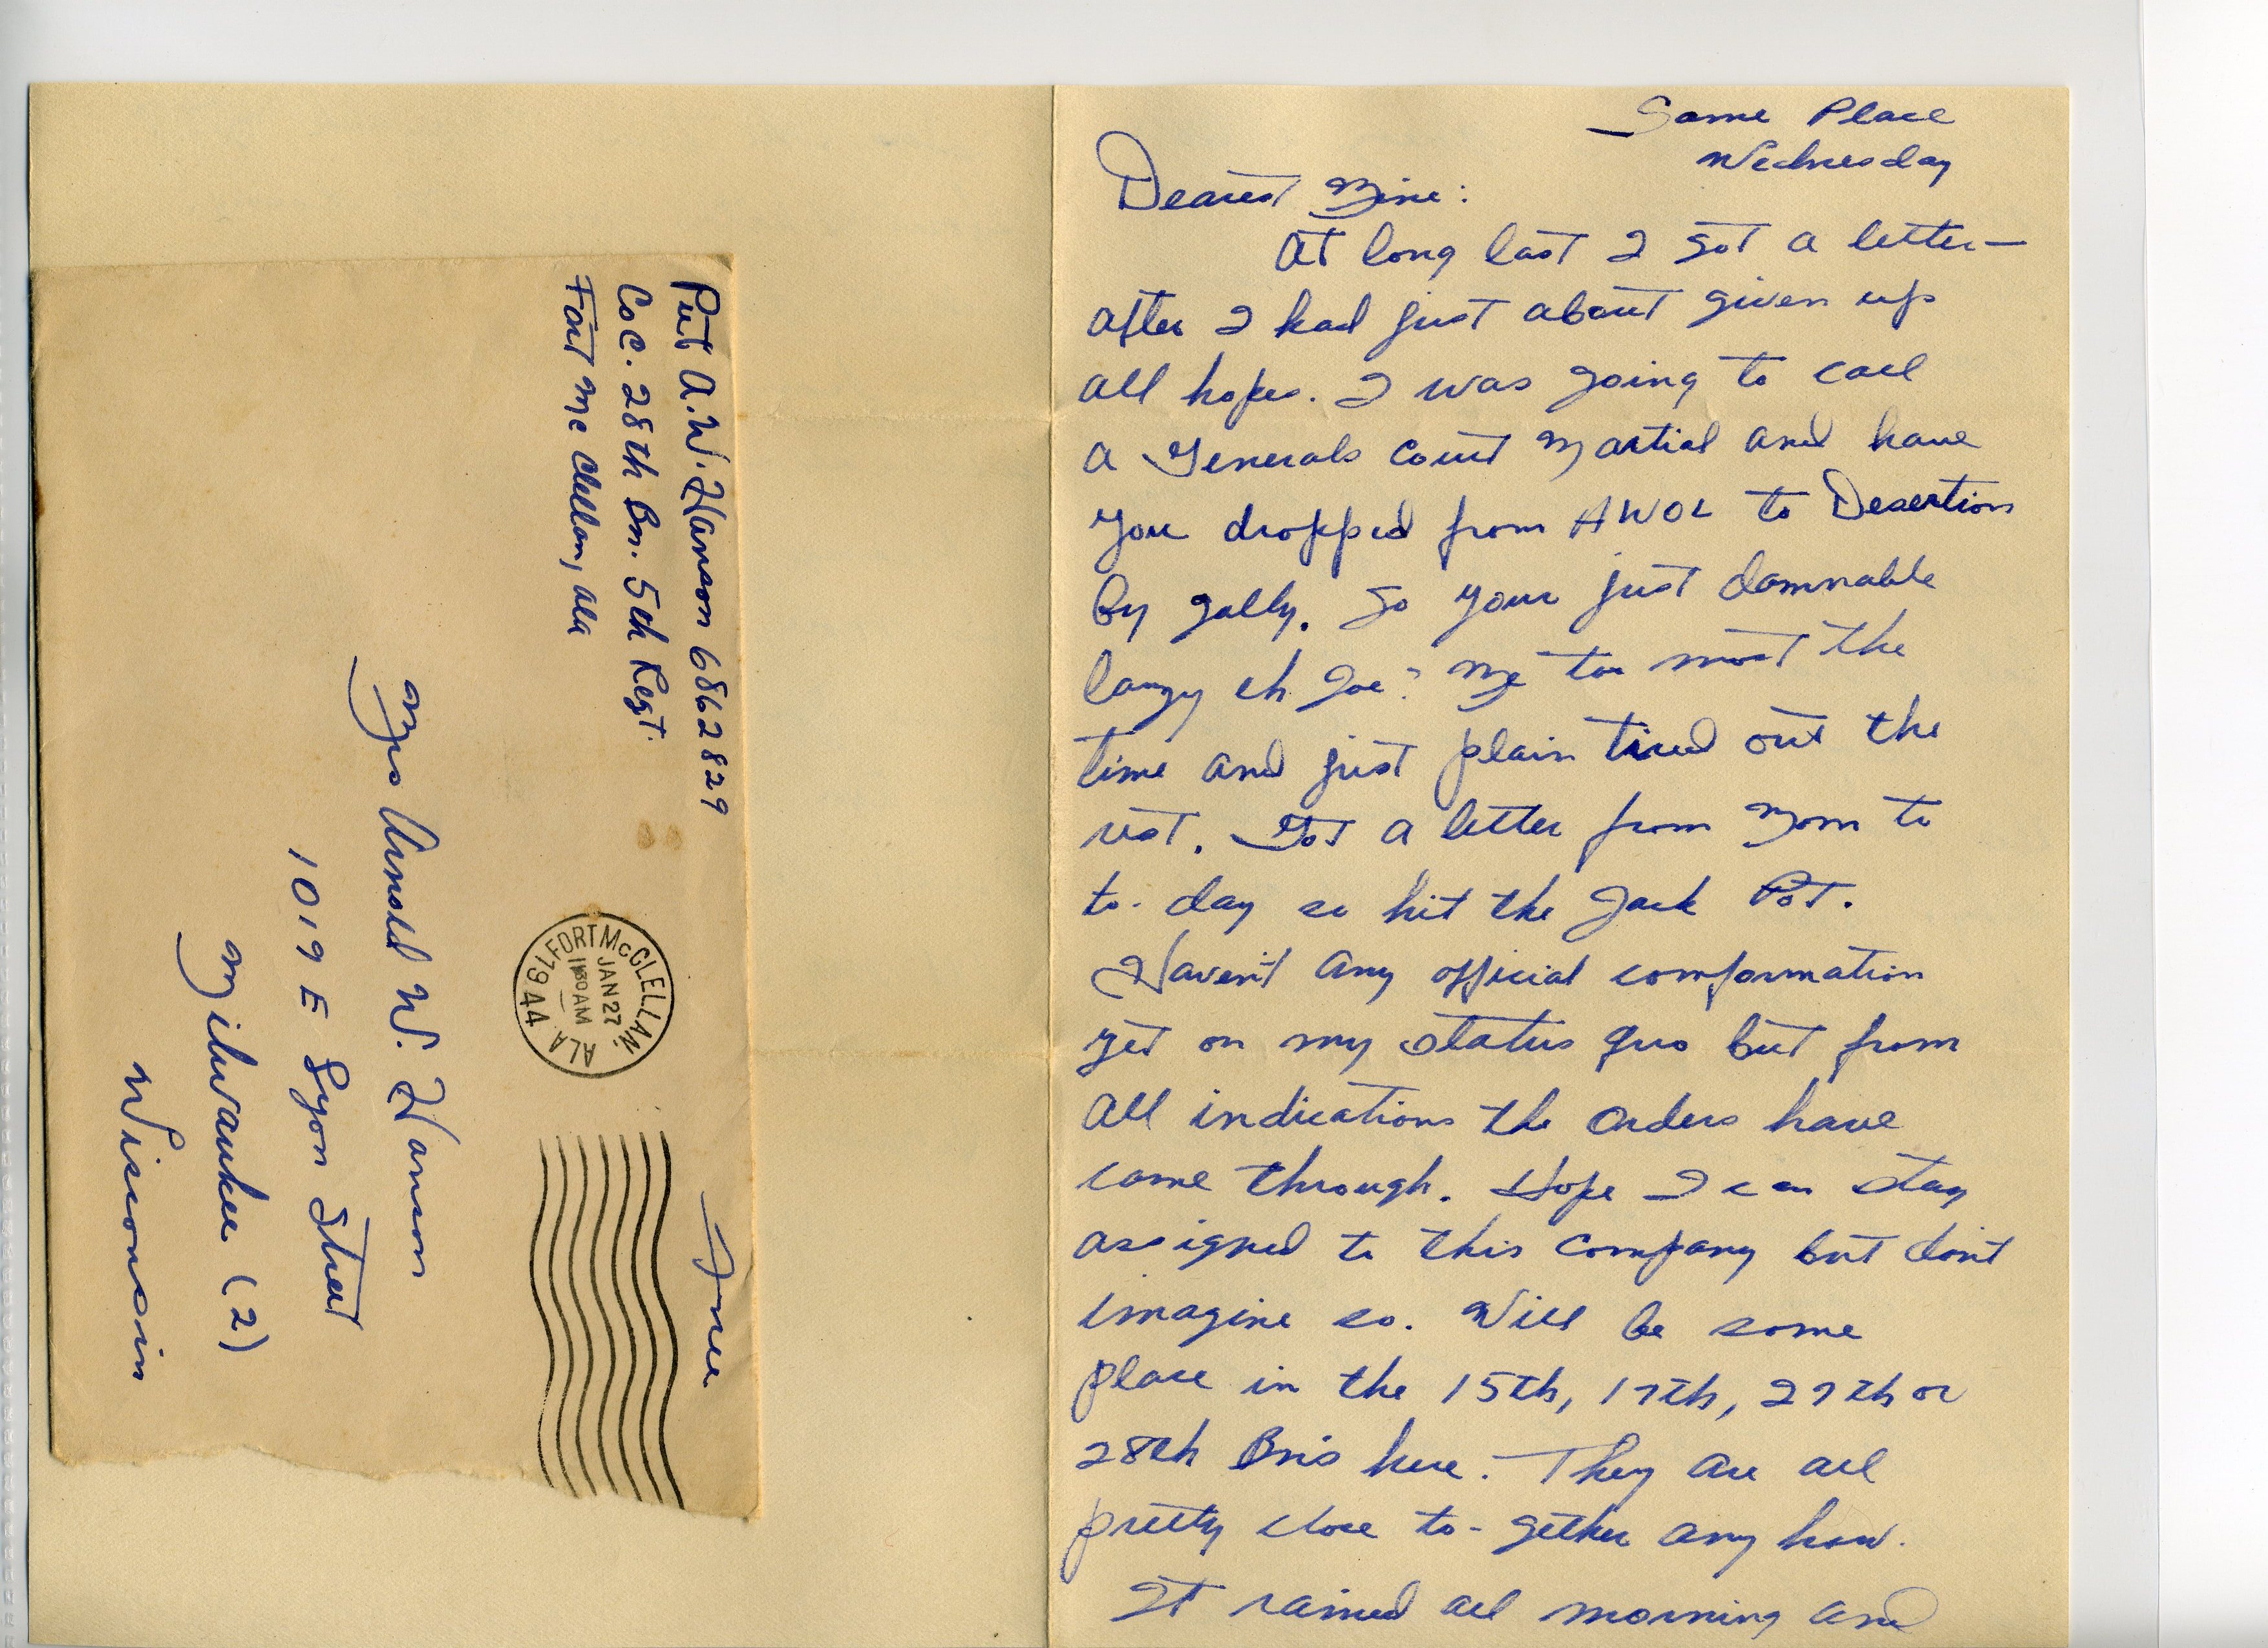 Pvt A.W. Hanson 6862829
Co C. 28th Bn. 5th Regt.
Fort Mc Clellan, Ala
Free
FORT McCLELLAN, ALA.
JAN 27
1130 AM
1944
Mrs Arnold W. Hanson
1019 E Lyon Street
Milwaukee (2)
Wisconsin
Same Place
Wednesday
Dearest Mine:
At long last I got a letter—
after I had just about given up
all hopes. I was going to call
a Generals Court Martial and have
you dropped from AWOL to Desertion
by golly. So your just damnable
lazy eh Joe? Me too most the
time and just plain tired out the
rest. Got a letter from Mom to
to-day so hit the Jack Pot.
Haven't any official comformation
yet on my status quo but from
all indications the orders have
come through. Hope I can stay
assigned to this company but don't
imagine so. Will be some
place in the 15th, 17th, 27th or
28th Bn's here. They are all
pretty close to-gether any how.
It rained all morning and